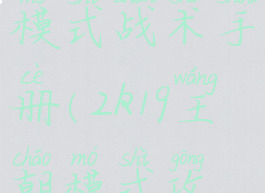 模式战术手
cè wáng
册(2k19王
cháo mó shì gōng
朝模式